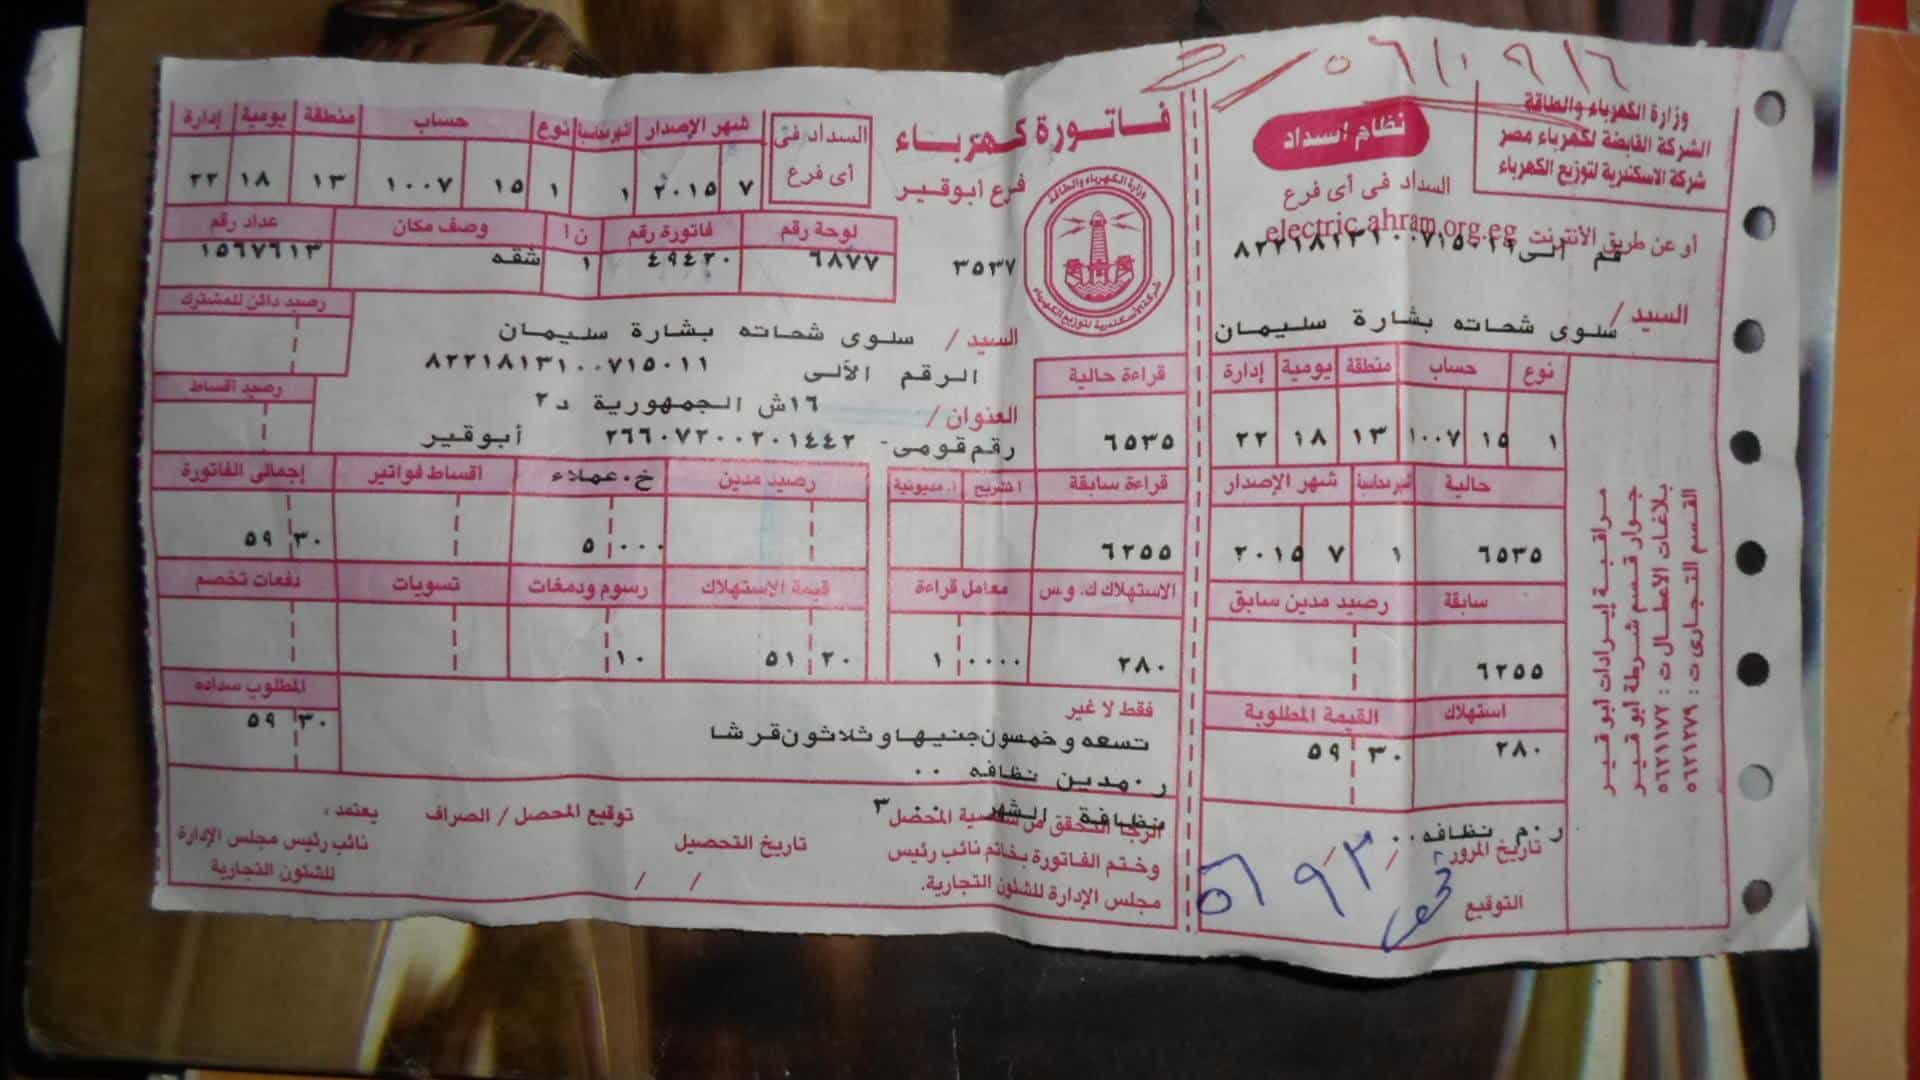 وزارة الكهرباء والطاقة
الشركة القابضة لكهرباء مصر
شركة الاسكندرية لتوزيع الكهرباء
نظام اسداد
السداد فى أى فرع
أو عن طريق الأنترنت electric.ahram.org.eg
السيد / سلوى شحاته بشارة سليمان
نوع حساب منطقة يومية إدارة
١ ١٥ ١٠٠٧ ١٣ ١٨ ٢٢
حالية شهر محاسبة شهر الإصدار
٦٥٣٥ ١ ٧ ٢٠١٥
سابقة رصيد مدين سابق
٦٢٥٥
استهلاك القيمة المطلوبة
٢٨٠ ٥٩ ٣٠
ر.م نظافه ٠٠
تاريخ المرور
التوقيع
مراقبة إيرادات ابو قير
جوار قسم شرطة ابو قير
بلاغات الأعطال ت : ٥٦٢١١٧٢
القسم التجارى ت : ٥٦٢١٢٧٩
فاتورة كهرباء
فرع ابوقير
السداد فى
أى فرع
شهر الإصدار شهر محاسبة نوع حساب منطقة يومية إدارة
٧ ٢٠١٥ ١ ١ ١٥ ١٠٠٧ ١٣ ١٨ ٢٢
وزارة الكهرباء والطاقة
شركة الاسكندرية لتوزيع الكهرباء
٣٥٣٧
لوحة رقم فاتورة رقم ن ا وصف مكان عداد رقم
٦٨٧٧ ٤٩٤٢٠ ١ شقه ١٥٦٧٦١٣
رصيد دائن للمشترك
السيد / سلوى شحاته بشارة سليمان
الرقم الألى ٨٢٢١٨١٣١٠٠٧١٥٠١١
رصيد اقساط
العنوان / ١٦ش الجمهورية د٢
رقم قومى- ٢٦٦٠٧٢٠٠٢٠١٤٤٢ أبوقير
قراءة حالية
٦٥٣٥
قراءة سابقة ا.مديونية رصيد مدين خ.عملاء اقساط فواتير إجمالى الفاتورة
٦٢٥٥ ٥ ٠٠٠ ٥٩ ٣٠
الاستهلاك ك.و.س معامل قراءة قيمة الاستهلاك رسوم ودمغات تسويات دفعات تخصم
٢٨٠ ١ ٠٠٠٠ ٥١ ٢٠ ١٠
المطلوب سداده
٥٩ ٣٠
فقط لا غير
تسعه وخمسون جنيها وثلاثون قرشا
ر.مدين نظافه ٠٠
نظافة الشهر ٣
الرجا التحقق من شخصية المحصل
وختم الفاتورة بخاتم نائب رئيس
مجلس الإدارة للشئون التجارية.
توقيع المحصل / الصراف
تاريخ التحصيل
/ /
يعتمد،
نائب رئيس مجلس الإدارة
للشئون التجارية